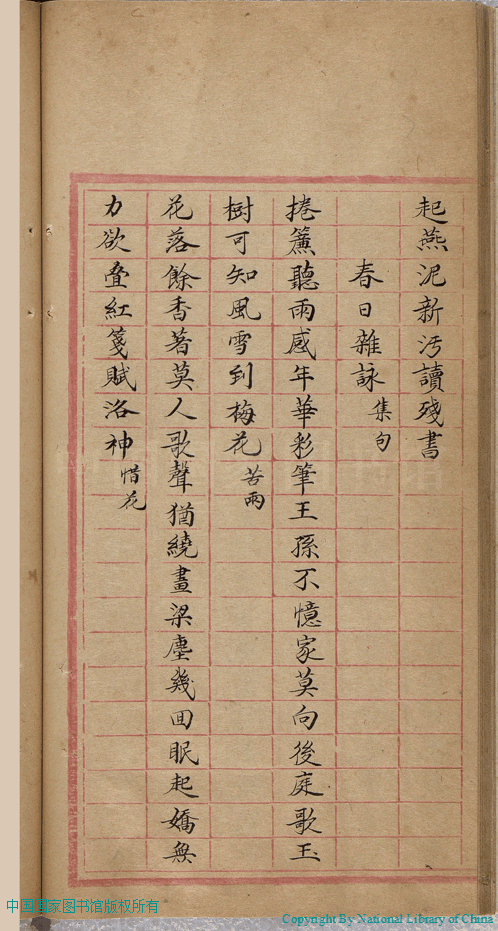 起燕泥新汚讀殘書
春日雜詠集句
捲簾聽雨感年華彩筆王孫不憶家莫向後庭歌玉
樹可知風雪到梅花苦雨
花落餘香著莫人歌聲猶繞畫梁塵幾回眠起嬌無
力欲疊紅箋賦洛神惜花
中国国家图书馆版权所有
Copyright By National Library of China